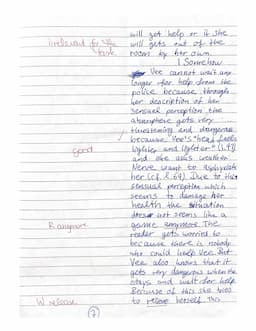 will get help or if she
irrelevant for the task
will gets out of the
room by her own.
1 Somehow
Vee cannot wait any
longer for help from the
police because through
her description of her
sensual perception the
atmosphere gets very
threatening and dangerous
because Vee's "head feels
good
lighter and lighter" (l.48)
and she asks weather
Nerve want to
her (cf. l.64). Due to this
sensual perception which
seems to damage her
health the situation
does not seems like a
R anymore
game anymore The
reader gets worried to
because there is nobody
who could help Vee. But
Vee also knows that it
gets very dangerous when she
stays and wait for help.
Because of this she tries
W release
to relieve herself this
7